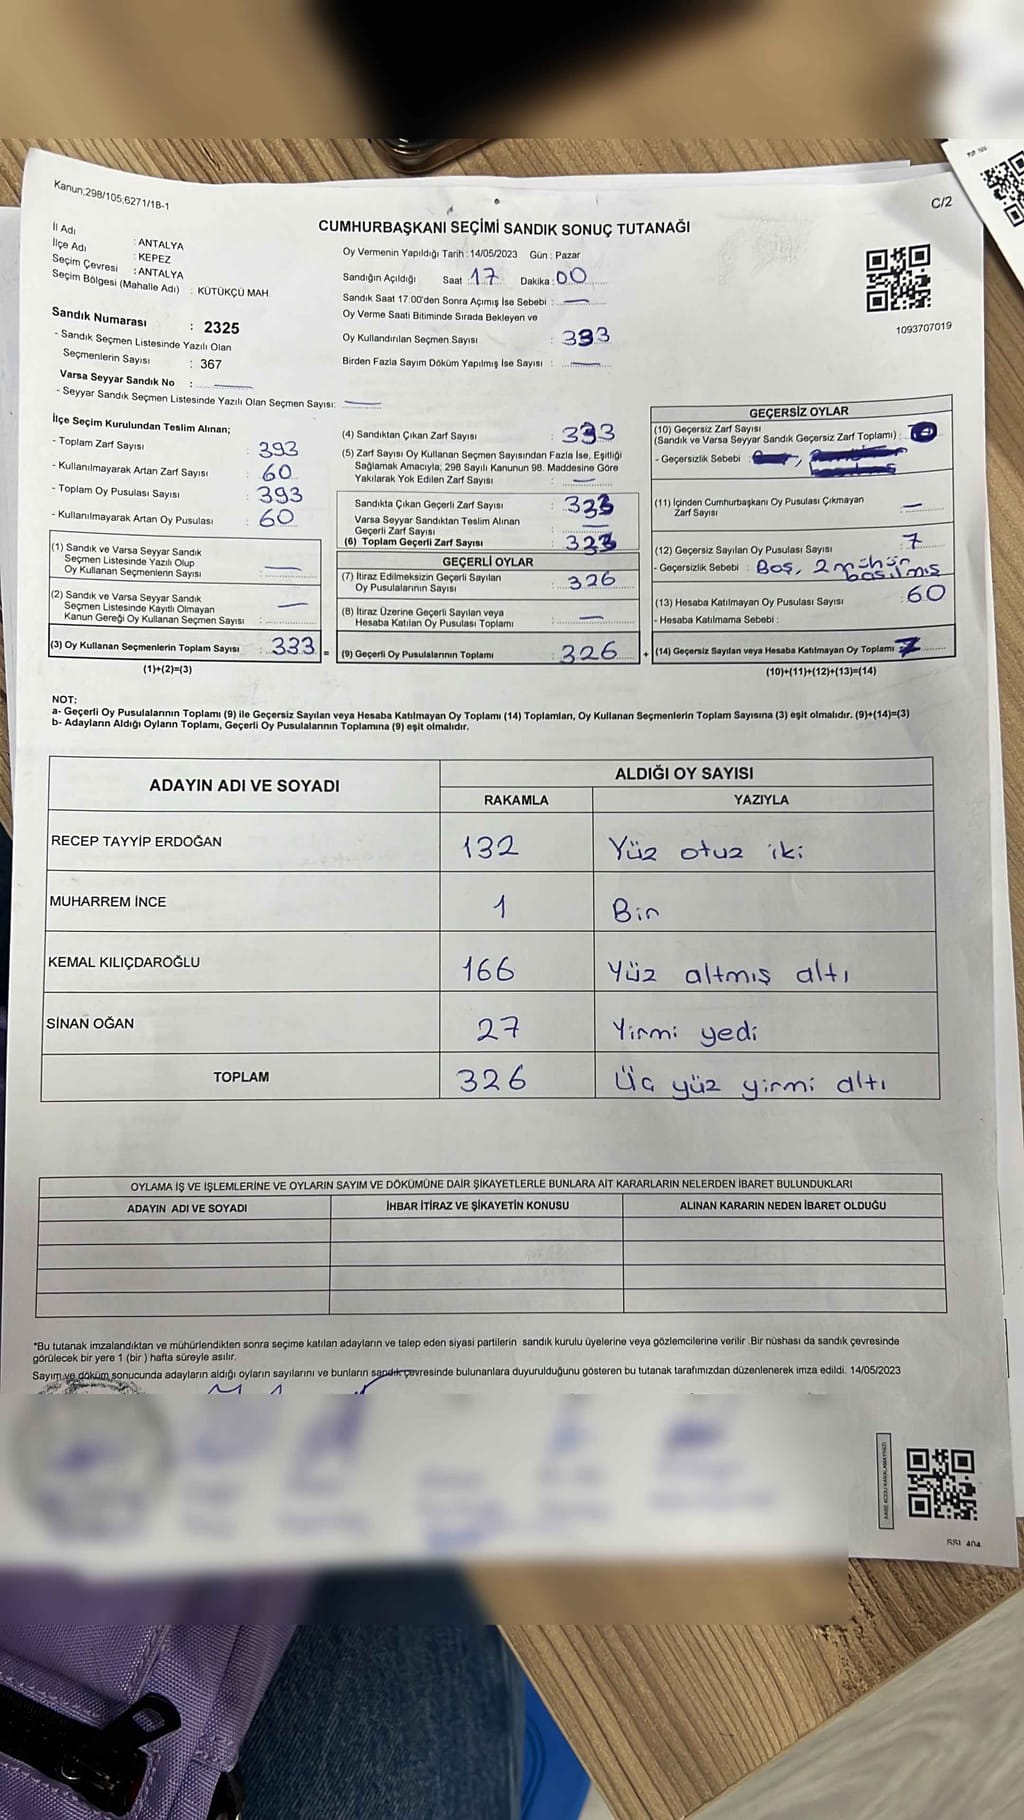 Kanun;298/105,6271/18-1
C/2
CUMHURBAŞKANI SEÇİMİ SANDIK SONUÇ TUTANAĞI
İl Adı : ANTALYA
İlçe Adı : KEPEZ
Seçim Çevresi : ANTALYA
Seçim Bölgesi (Mahalle Adı) : KÜTÜKÇÜ MAH.
Sandık Numarası : 2325
- Sandık Seçmen Listesinde Yazılı Olan
Seçmenlerin Sayısı : 367
Varsa Seyyar Sandık No :
- Seyyar Sandık Seçmen Listesinde Yazılı Olan Seçmen Sayısı:
Oy Vermenin Yapıldığı Tarih :14/05/2023 Gün : Pazar
Sandığın Açıldığı Saat 17 Dakika : 00
Sandık Saat 17:00'den Sonra Açımış İse Sebebi :
Oy Verme Saati Bitiminde Sırada Bekleyen ve
Oy Kullandırılan Seçmen Sayısı : 333
Birden Fazla Sayım Döküm Yapılmış İse Sayısı :
1093707019
İlçe Seçim Kurulundan Teslim Alınan;
- Toplam Zarf Sayısı : 393
- Kullanılmayarak Artan Zarf Sayısı : 60
- Toplam Oy Pusulası Sayısı : 393
- Kullanılmayarak Artan Oy Pusulası : 60
(1) Sandık ve Varsa Seyyar Sandık
Seçmen Listesinde Yazılı Olup
Oy Kullanan Seçmenlerin Sayısı :
(2) Sandık ve Varsa Seyyar Sandık
Seçmen Listesinde Kayıtlı Olmayan
Kanun Gereği Oy Kullanan Seçmen Sayısı :
(3) Oy Kullanan Seçmenlerin Toplam Sayısı : 333 =
(1)+(2)=(3)
(4) Sandıktan Çıkan Zarf Sayısı : 333
(5) Zarf Sayısı Oy Kullanan Seçmen Sayısından Fazla İse, Eşitliği
Sağlamak Amacıyla; 298 Sayılı Kanunun 98. Maddesine Göre
Yakılarak Yok Edilen Zarf Sayısı :
Sandıkta Çıkan Geçerli Zarf Sayısı : 333
Varsa Seyyar Sandıktan Teslim Alınan
Geçerli Zarf Sayısı :
(6) Toplam Geçerli Zarf Sayısı : 333
GEÇERLİ OYLAR
(7) İtiraz Edilmeksizin Geçerli Sayılan
Oy Pusulalarının Sayısı : 326
(8) İtiraz Üzerine Geçerli Sayılan veya
Hesaba Katılan Oy Pusulası Toplamı :
(9) Geçerli Oy Pusulalarının Toplamı : 326 +
GEÇERSİZ OYLAR
(10) Geçersiz Zarf Sayısı
(Sandık ve Varsa Seyyar Sandık Geçersiz Zarf Toplamı) :
- Geçersizlik Sebebi :
(11) İçinden Cumhurbaşkanı Oy Pusulası Çıkmayan
Zarf Sayısı :
(12) Geçersiz Sayılan Oy Pusulası Sayısı : 7
- Geçersizlik Sebebi : Boş, 2 mühür
basılmış
(13) Hesaba Katılmayan Oy Pusulası Sayısı : 60
- Hesaba Katılmama Sebebi :
(14) Geçersiz Sayılan veya Hesaba Katılmayan Oy Toplamı : 7
(10)+(11)+(12)+(13)=(14)
NOT:
a- Geçerli Oy Pusulalarının Toplamı (9) ile Geçersiz Sayılan veya Hesaba Katılmayan Oy Toplamı (14) Toplamları, Oy Kullanan Seçmenlerin Toplam Sayısına (3) eşit olmalıdır. (9)+(14)=(3)
b- Adayların Aldığı Oyların Toplamı, Geçerli Oy Pusulalarının Toplamına (9) eşit olmalıdır.
ADAYIN ADI VE SOYADI
ALDIĞI OY SAYISI
RAKAMLA YAZIYLA
RECEP TAYYİP ERDOĞAN 132 Yüz otuz iki
MUHARREM İNCE 1 Bir
KEMAL KILIÇDAROĞLU 166 Yüz altmış altı
SİNAN OĞAN 27 Yirmi yedi
TOPLAM 326 Üç yüz yirmi altı
OYLAMA İŞ VE İŞLEMLERİNE VE OYLARIN SAYIM VE DÖKÜMÜNE DAİR ŞİKAYETLERLE BUNLARA AİT KARARLARIN NELERDEN İBARET BULUNDUKLARI
ADAYIN ADI VE SOYADI İHBAR İTİRAZ VE ŞİKAYETİN KONUSU ALINAN KARARIN NEDEN İBARET OLDUĞU
*Bu tutanak imzalandıktan ve mühürlendikten sonra seçime katılan adayların ve talep eden siyasi partilerin sandık kurulu üyelerine veya gözlemcilerine verilir .Bir nüshası da sandık çevresinde
görülecek bir yere 1 (bir ) hafta süreyle asılır.
Sayım ve döküm sonucunda adayların aldığı oyların sayılarını ve bunların sandık çevresinde bulunanlara duyurulduğunu gösteren bu tutanak tarafımızdan düzenlenerek imza edildi. 14/05/2023